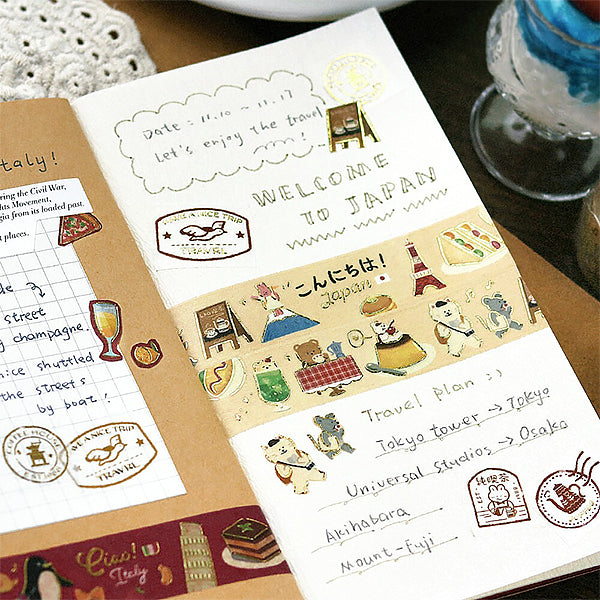 taly!
ring the Civil War,
hts Movement,
gia from its loaded past.
t places.
de
street
g champagne.
nice shuttled
the streets
by boat!
COFFEE HOUSE
HAVE A NICE TRIP
TRAVEL
Ciao!
Italy
Date : 11.10 ~ 11.17
Let's enjoy the travel
!
WELCOME
TO JAPAN
HAVE A NICE TRIP
TRAVEL
こんにちは!
Japan
Travel plan :)
Tokyo tower → Tokyo
Universal Studios → Osaka
Akihabara
Mount-Fuji
純喫茶